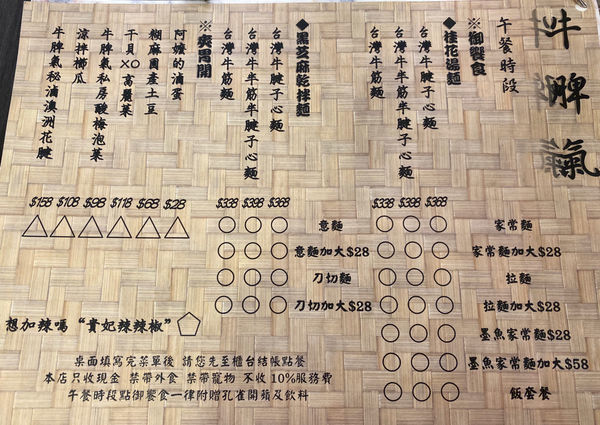 牛脾氣
午餐時段
※御饗食
◆桂花湯麵
台灣牛腱子心麵
台灣半筋半腱子心麵
台灣牛筋麵
◆黑芝麻乾拌麵
台灣牛腱子心麵
台灣半筋半腱子心麵
台灣牛筋麵
※爽胃開
阿嬤的滷蛋
糊麻國產土豆
干貝XO高麗菜
牛脾氣私房酸梅泡菜
涼拌櫛瓜
牛脾氣秘滷澳洲花腱
$338 $398 $368
家常麵
家常麵加大$28
拉麵
拉麵加大$28
墨魚家常麵$28
墨魚家常麵加大$58
飯套餐
$338 $398 $368
意麵
意麵加大$28
刀切麵
刀切加大$28
$158 $108 $98 $118 $68 $28
想加辣嗎“貴妃辣辣椒”
桌面填寫完菜單後 請您先至櫃台結帳點餐
本店只收現金 禁帶外食 禁帶寵物 不收10%服務費
午餐時段點御饗食一律附贈孔雀開蘋及飲料